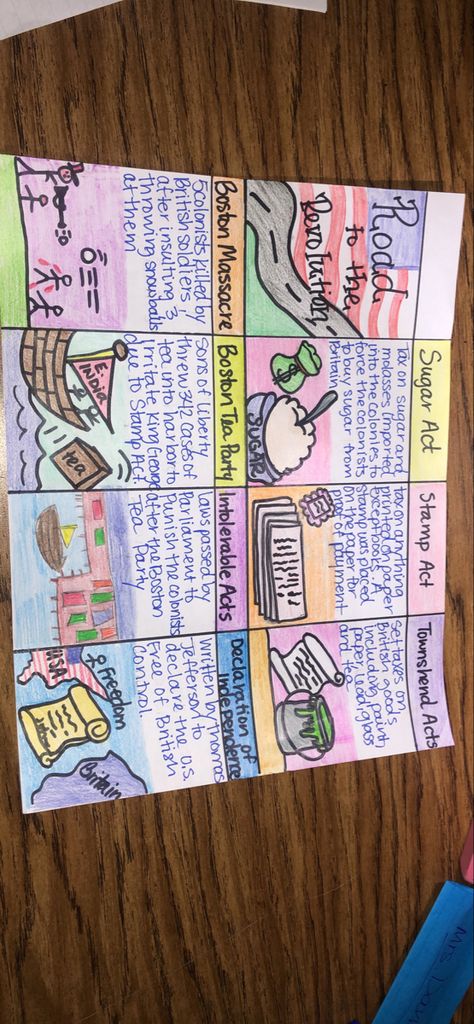 Road
to the
Revolution
Sugar Act
Tax on sugar and
molasses imported
into the colonies to
force the colonists
to buy sugar from
Britain
$
SUGAR
Stamp Act
tax on anything
printed on paper
except books. A
stamp was placed
on the paper for
proof of payment
Townshend Acts
set taxes on
British goods
including paint,
paper, lead, glass
and tea
Boston Massacre
5 colonists killed by
British soldiers
after insulting &
throwing snowballs
at them
Boston Tea Party
Sons of Liberty
threw 342 cases of
tea into harbor to
irritate King George
due to Stamp Act.
E INDIA
tea
Intolerable Acts
Laws passed by
Parliament to
Punish the colonists
after the Boston
Tea Party
Declaration of
Independence
written by Thomas
Jefferson to
declare the U.S.
Free of British
Control.
USA
Freedom
Britain
Mrs.